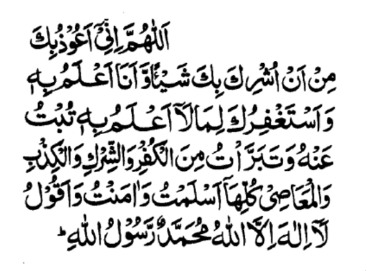 اَللّٰهُمَّ اِنِّیْۤ اَعُوْذُ بِكَ
مِنْ اَنْ اُشْرِكَ بِكَ شَیْئًا وَّ اَنَا اَعْلَمُ بِهٖ
وَ اَسْتَغْفِرُكَ لِمَا لَاۤ اَعْلَمُ بِهٖ تُبْتُ
عَنْهُ وَ تَبَرَّاْتُ مِنَ الْكُفْرِ وَ الشِّرْكِ وَ الْكِذْبِ
وَ الْمَعَاصِیْ كُلِّهَاۤ اَسْلَمْتُ وَ اٰمَنْتُ وَ اَقُوْلُ
لَاۤ اِلٰهَ اِلَّا اللّٰهُ مُحَمَّدٌ رَّسُوْلُ اللّٰهِ ؕ